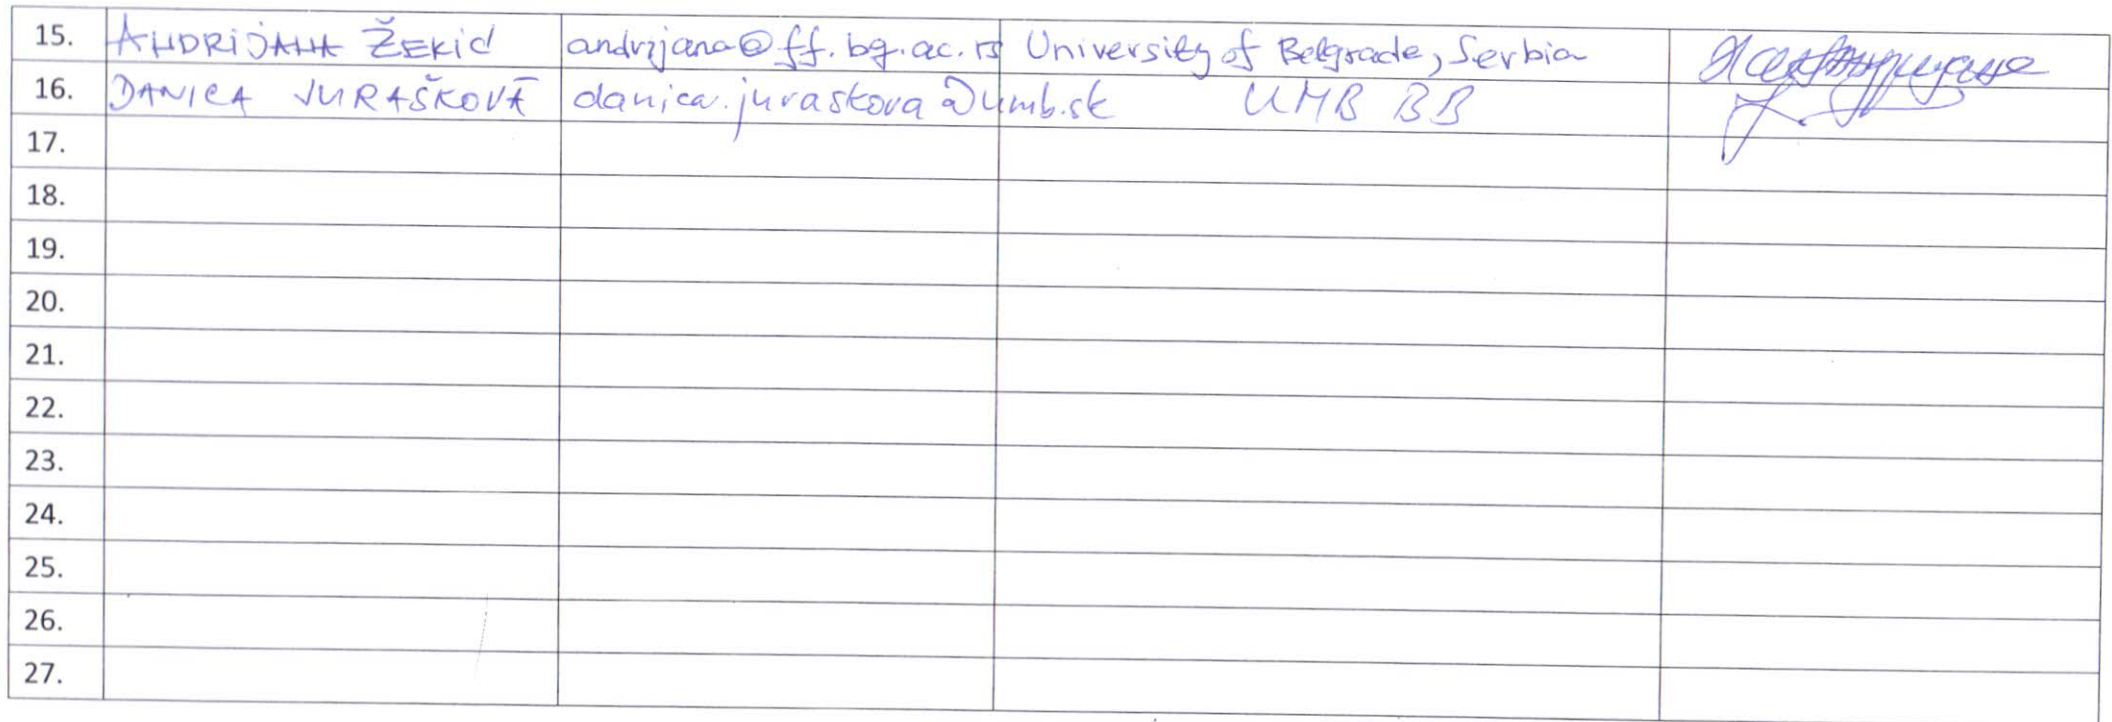 15. ANDRIJANA ŽEKIĆ andrijana@ff.bg.ac.rs University of Belgrade, Serbia
16. DANICA JURAŠKOVÁ danica.juraskova@umb.sk UMB BB
17.
18.
19.
20.
21.
22.
23.
24.
25.
26.
27.